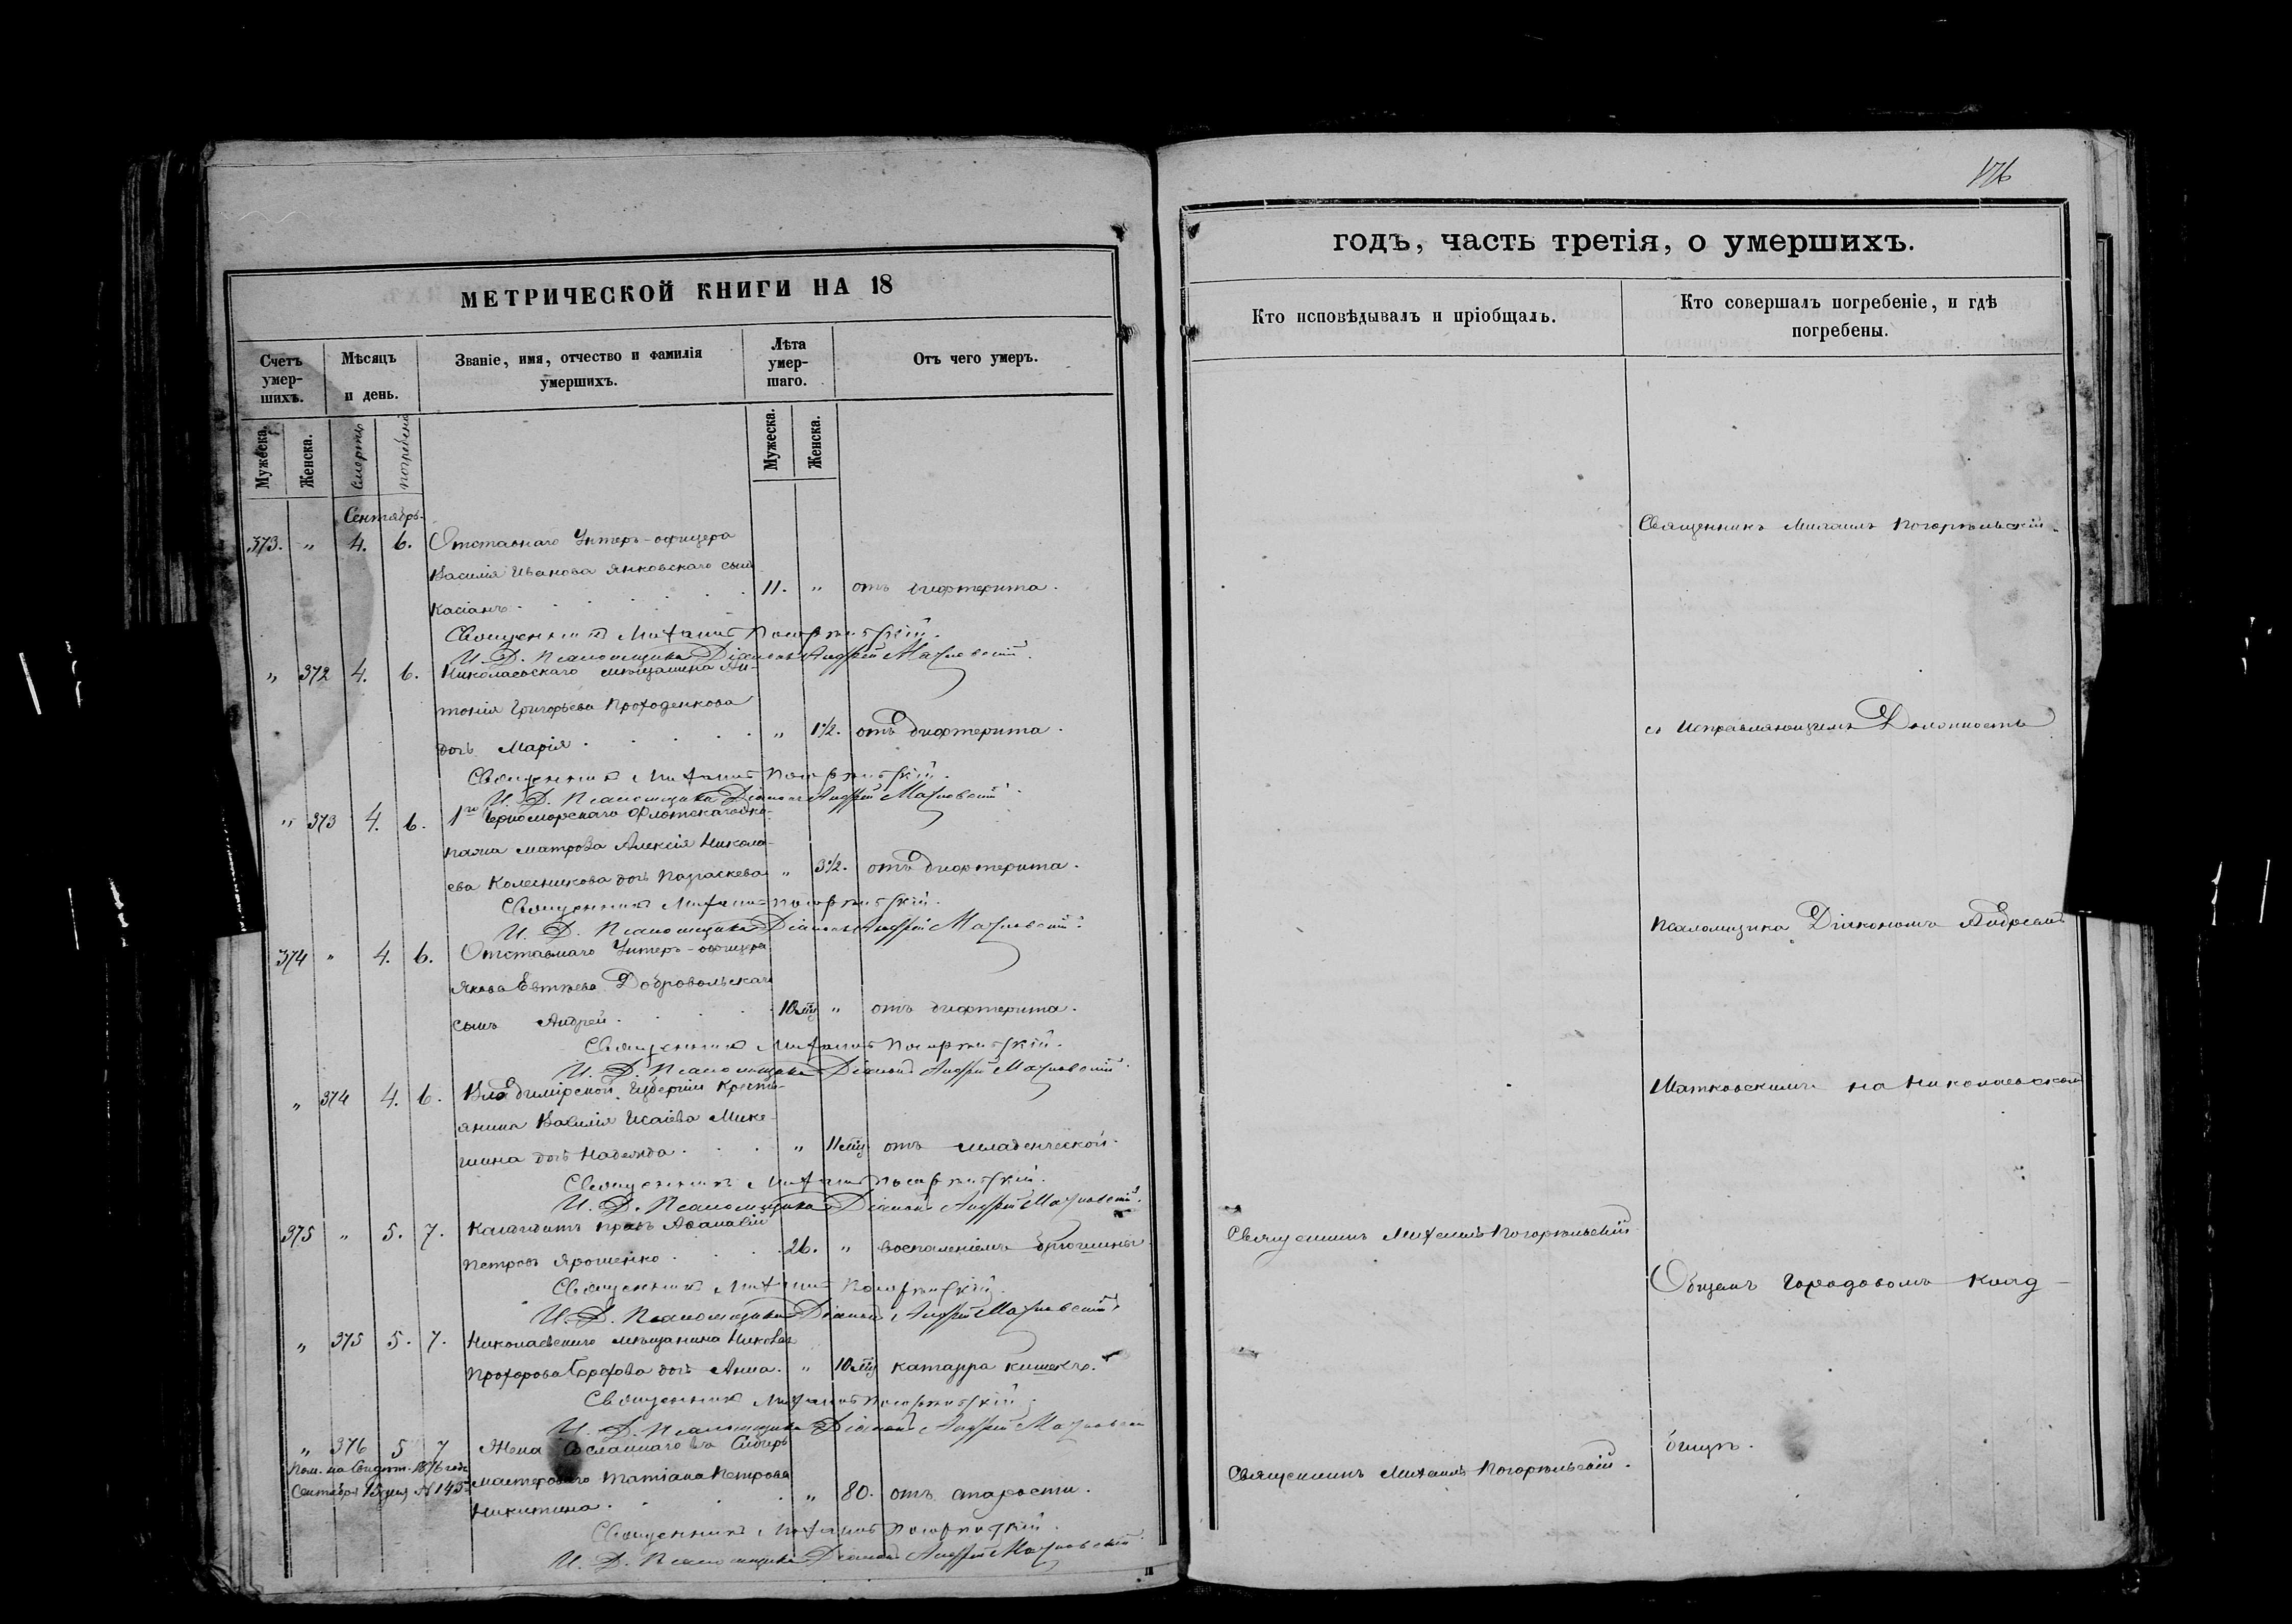 МЕТРИЧЕСКОЙ КНИГИ НА 18
Счетъ умер-шихъ.
Мѣсяцъ и день.
Званіе, имя, отчество и фамилія умершихъ.
Лѣта умер-шаго.
Отъ чего умеръ.
Мужеска.
Женска.
Смерти
погребенія
Мужеска.
Женска.
Сентябрь
373. " 4. 6. Отставнаго Унтеръ-офицера
Василія Иванова Янковскаго сынъ
Касіанъ. 11. " отъ дифтерита.
Священникъ Михаилъ Погорѣльскій.
И. Д. Псаломщика Діаконъ Андрей
" 372 4. 6. Николаевскаго мѣщанина Ан-
тонія Григорьева Проходенкова
дочь Марія. " 1½. отъ дифтерита.
Священникъ Михаилъ Погорѣльскій.
И. Д. Псаломщика Діаконъ Андрей
" 373 4. 6. 1го Черноморскаго Флотскаго эки-
пажа матроса Алексія Никола-
ева Колесникова дочь Параскева " 3½. отъ дифтерита.
Священникъ Михаилъ Погорѣльскій.
И. Д. Псаломщика Діаконъ Андрей
374 " 4. 6. Отставнаго Унтеръ-офицера
Якова Евтѣева Добровольскаго
сынъ Андрей. 10 мѣц " отъ дифтерита.
Священникъ Михаилъ Погорѣльскій.
И. Д. Псаломщика Діаконъ Андрей
" 374 4. 6. Владимірской Губерніи крестья-
янина Василія Исаіева Мике-
шина дочь Надежда. " 11 мѣц отъ младенческой.
Священникъ Михаилъ Погорѣльскій.
И. Д. Псаломщика Діаконъ Андрей
375 " 5. 7. Кандидатъ правъ Аѳанасій
Петровъ Ярошенко. 26. " воспаленіемъ брюшины
Священникъ Михаилъ Погорѣльскій.
И. Д. Псаломщика Діаконъ Андрей
" 375 5. 7. Николаевскаго мѣщанина
Прохорова дочь Анна. " 10 мѣц катарра кишекъ.
Священникъ Михаилъ Погорѣльскій.
И. Д. Псаломщика Діаконъ Андрей
" 376 5 7 Жена Сосланнаго въ Сибирь
мастероваго Татіана Петрова
Никитина. " 80. отъ старости.
1876 года
Сентября
Священникъ Михаилъ Погорѣльскій.
И. Д. Псаломщика Діаконъ Андрей
176
годъ, часть третія, о умершихъ.
Кто исповѣдывалъ и пріобщалъ.
Кто совершалъ погребеніе, и гдѣ погребены.
Священникъ Михаилъ Погорѣльскій
съ Исправляющимъ Должность
Псаломщика Діакономъ Андреемъ
на Николаевскомъ
Священникъ Михаилъ Погорѣльскій
Общемъ Городовомъ клад-
бищѣ.
Священникъ Михаилъ Погорѣльскій.